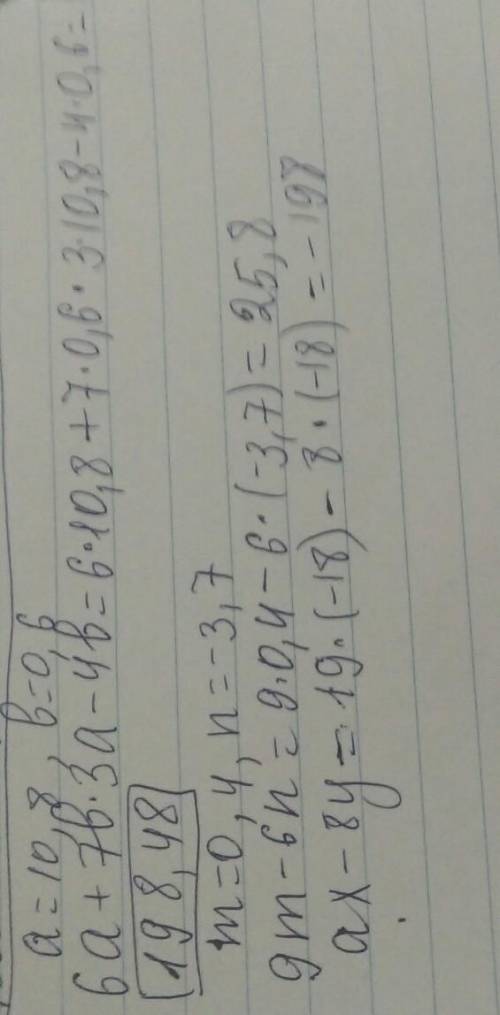 a=10,8, b=0,6
6a+7b·3a-4b=6·10,8+7·0,6·3·10,8-4·0,6=
198,48
m=0,4, n=-3,7
9m-6n=9·0,4-6·(-3,7)=25,8
ax-8y=19·(-18)-8·(-18)=-198